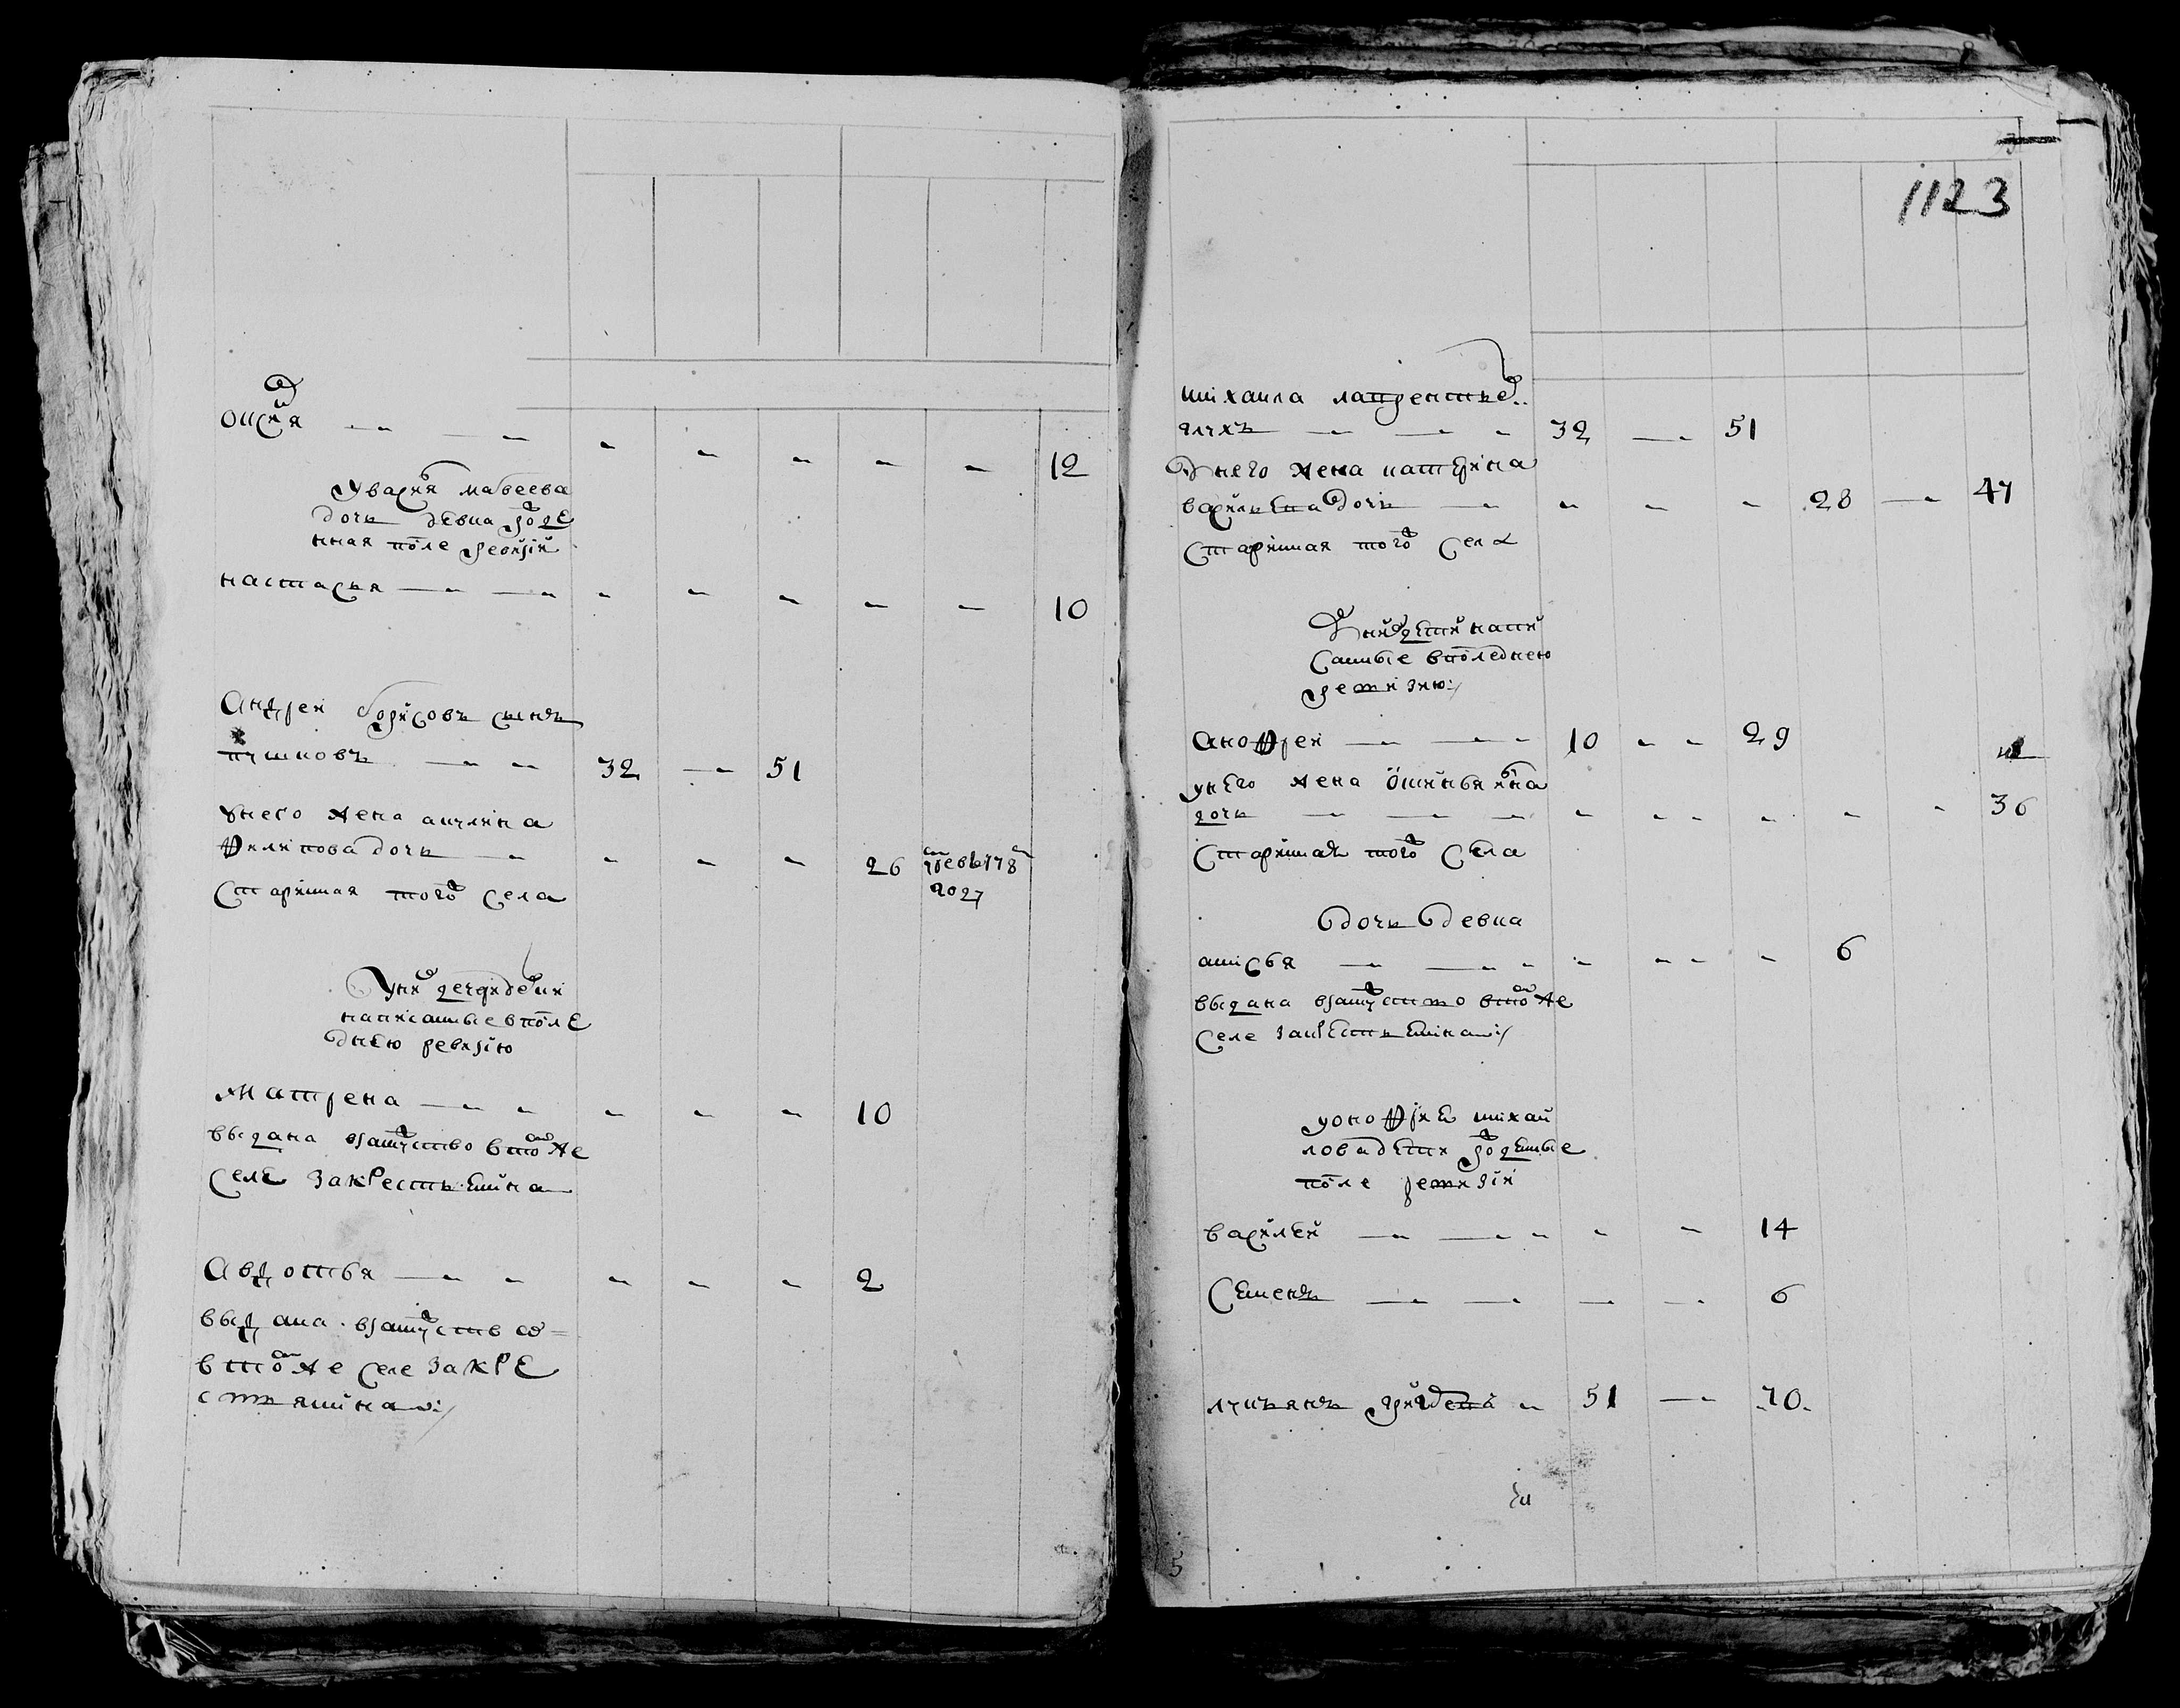 Оксия — — — — — — — 12
У васия матвеева
дочь девка рожде
нная после ревизии
настасья — — — — — — — 10
Андреи борисовъ сынъ
— — 32 — 51
Унего жена акулина
Филипова дочь — — — — 26 умре в 778
году
Старинная того Села
У них дочери девки
написанные в после
днею ревизию
Матрена — — — — — 10
выдана взамужство в том же
Селе за крестьянина
Авдотья — — — — — 2
выдана взамужство
в том же селе за кре
стьянина
1123
михаила лаврентьев
— — — 32 — 51
У него жена катерина
василь ева дочь — — — — 28 — 47
Старинная того Села
У них дети напи
санные в последнею
ревизию
Анофреи — — — 10 — — 29
у него жена
дочь — — — — — — — — — 36
Старинная того Села
дочь девка
анисья — — — — — — — 6
выдана взамужство в том же
Селе за крестьянина
У онофрия михаи
лова дети рожденные
после ревизии
василеи — — — — — 14
Семенъ — — — — 6
лукьянъ — 51 — 70